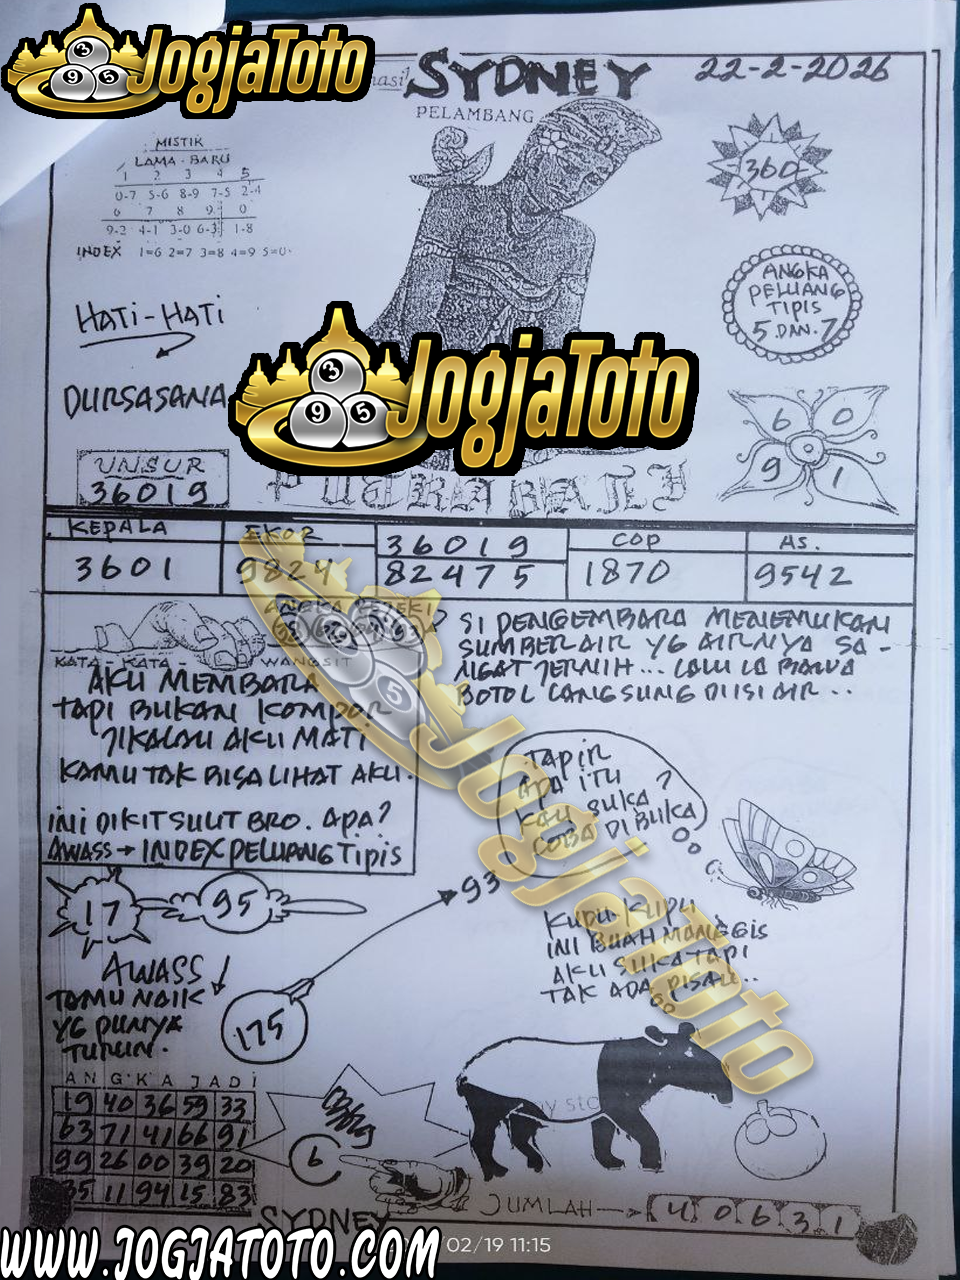 JogjaToto
hasil SYDNEY
22-2-2026
PELAMBANG
MISTIK
LAMA - BARU
1 2 3 4 5
0-7 5-6 8-9 7-5 2-4
6 7 8 9 0
9-2 4-1 3-0 6-3 1-8
INDEX 1=6 2=7 3=8 4=9 5=0
360
ANGKA
PELUANG
TIPIS
5 DAN 7
HATI-HATI
DURSASANA
JogjaToto
6 0
9 1
UNSUR
36019
PUTRA BALI
KEPALA
3601
EKOR
9824
36019
82475
COP
1870
AS.
9542
KATA-KATA- WANGSIT
AKU MEMBARA
TAPI BUKAN KOMPOR
JIKALAU AKU MATI
KAMU TAK BISA LIHAT AKU.
INI DIKIT SULIT BRO. APA?
AWASS → INDEX PELUANG TIPIS
SI PENGEMBARA MENEMUKAN
SUMBER AIR YG AIRNYA SA-
NGAT JERNIH... LALU IA BAWA
BOTOL LANGSUNG DIISI AIR..
TAPIR
APA ITU
KAU SUKA?
COBA DIBUKA
JogjaToto
17
95
93
KUPU-KUPU
INI BUAH MANGGIS
AKU SUKA TAPI
TAK ADA PISAU..
AWASS
TAMU NAIK
YG PUNYA
TURUN.
175
ANGKA JADI
19 40 36 59 33
63 71 41 66 91
99 26 00 39 20
35 11 94 15 83
6
JUMLAH → 4 0 6 3 1
SYDNEY
/02/19 11:15
WWW.JOGJATOTO.COM